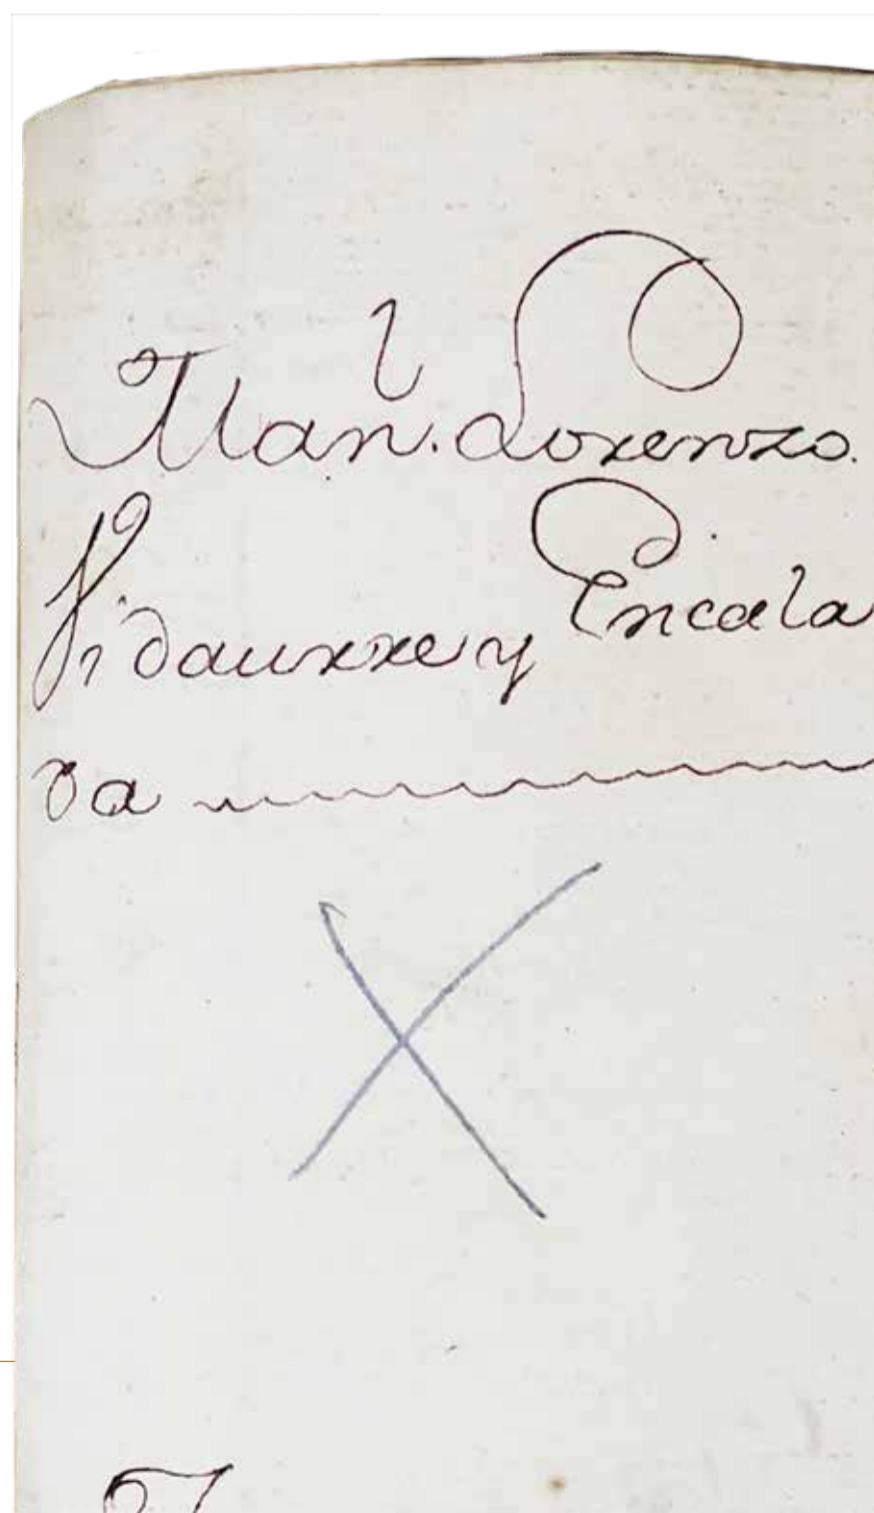 Man.l Lorenzo.
Vidaurre y Encala
da